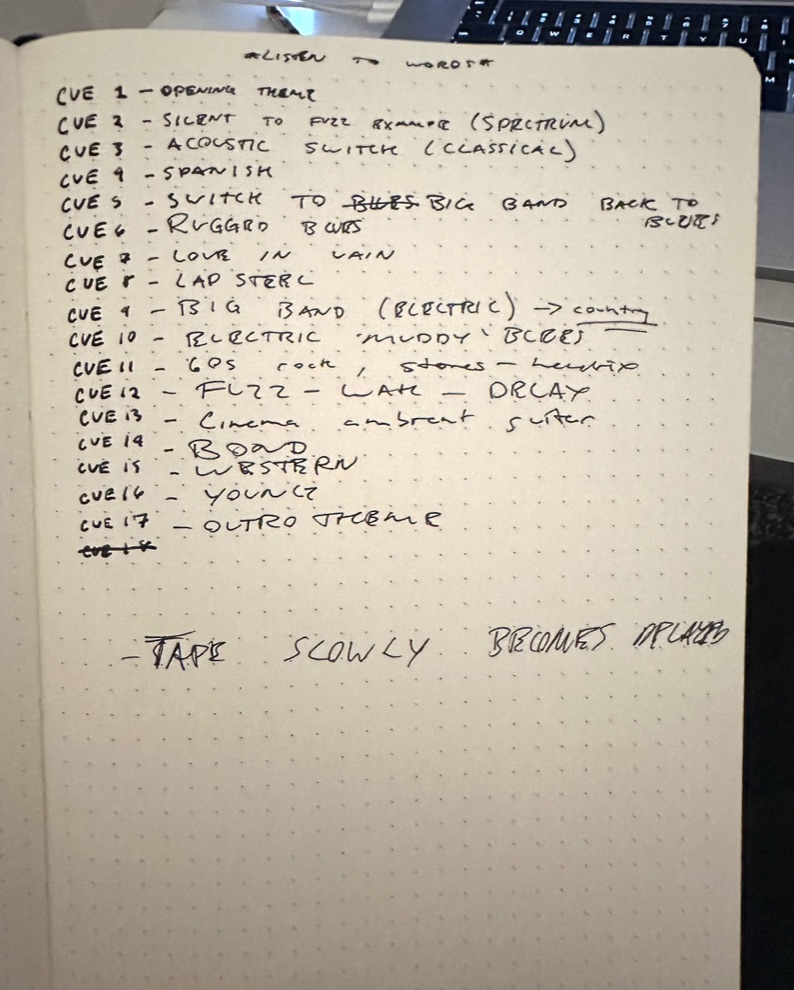 *LISTEN TO WORDS*
CUE 1 - OPENING THEME
CUE 2 - SILENT TO FUZZ EXAMPLE (SPECTRUM)
CUE 3 - ACOUSTIC SWITCH (CLASSICAL)
CUE 4 - SPANISH
CUE 5 - SWITCH TO BLUES BIG BAND BACK TO
BLUES
CUE 6 - RUGGED BLUES
CUE 7 - LOVE IN VAIN
CUE 8 - LAP STEEL
CUE 9 - BIG BAND (ELECTRIC) → country
CUE 10 - ELECTRIC 'MUDDY' BLUES
CUE 11 - 60s rock, stones - hendrix
CUE 12 - FUZZ - WAH - DELAY
CUE 13 - Cinema ambient guitar
CUE 14 - BOND
CUE 15 - WESTERN
CUE 16 - YOUNG
CUE 17 - OUTRO THEME
CUE 18
- TAPE SLOWLY BECOMES DELAYED